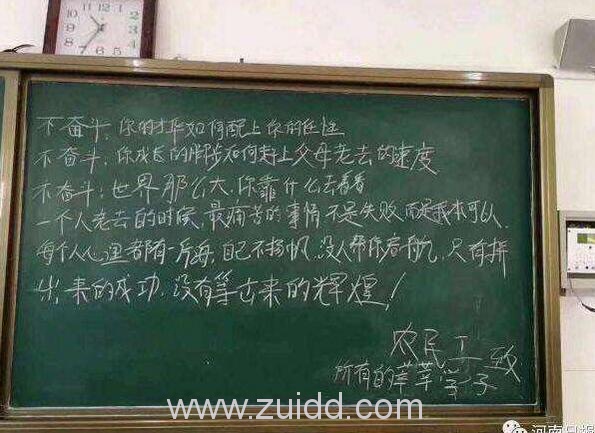 不奋斗,你的才华如何配上你的任性
不奋斗,你成长的脚步如何赶上父母老去的速度
不奋斗:世界那么大,你靠什么去看看
一个人老去的时候,最痛苦的事情不是失败而是我本可以.
每个人心里都有一片海,自己不扬帆,没人帮你启航,只有拼
出来的成功,没有等出来的辉煌!
农民工致
所有的莘莘学子
www.zuidd.com
河南日报